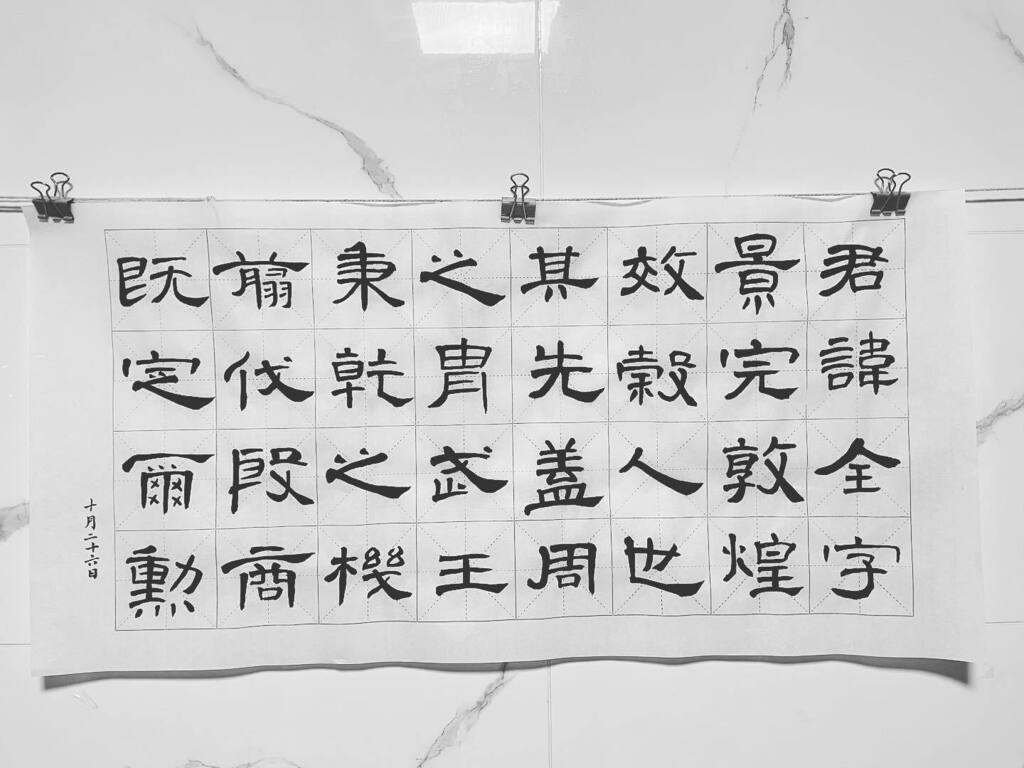 君諱全字
景完敦煌
效穀人世
其先蓋周
之胄武王
秉乾之機
翦伐殷商
既定爾勳
十月二十六日